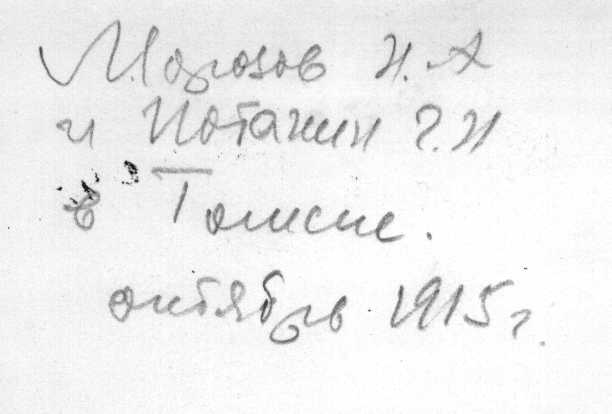 Морозов Н.А
и Потанин Г.Н
в Томске.
октябрь 1915 г.